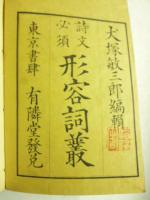 大塚敏三郎編輯
詩文必須
形容詞叢
東京書肆 有隣堂發兌